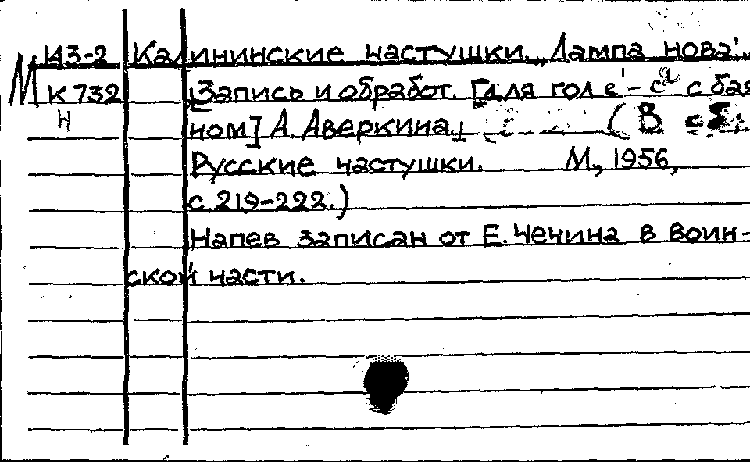 143-2 Калининские частушки. „Лампа нова".
М К 732 [Запись и обработ. [для гол с бая
Н ном] А. Аверкина.] (В сб.
Русские частушки. М., 1956,
с. 219-222.)
Напев записан от Е. Чечина в воин-
ской части.